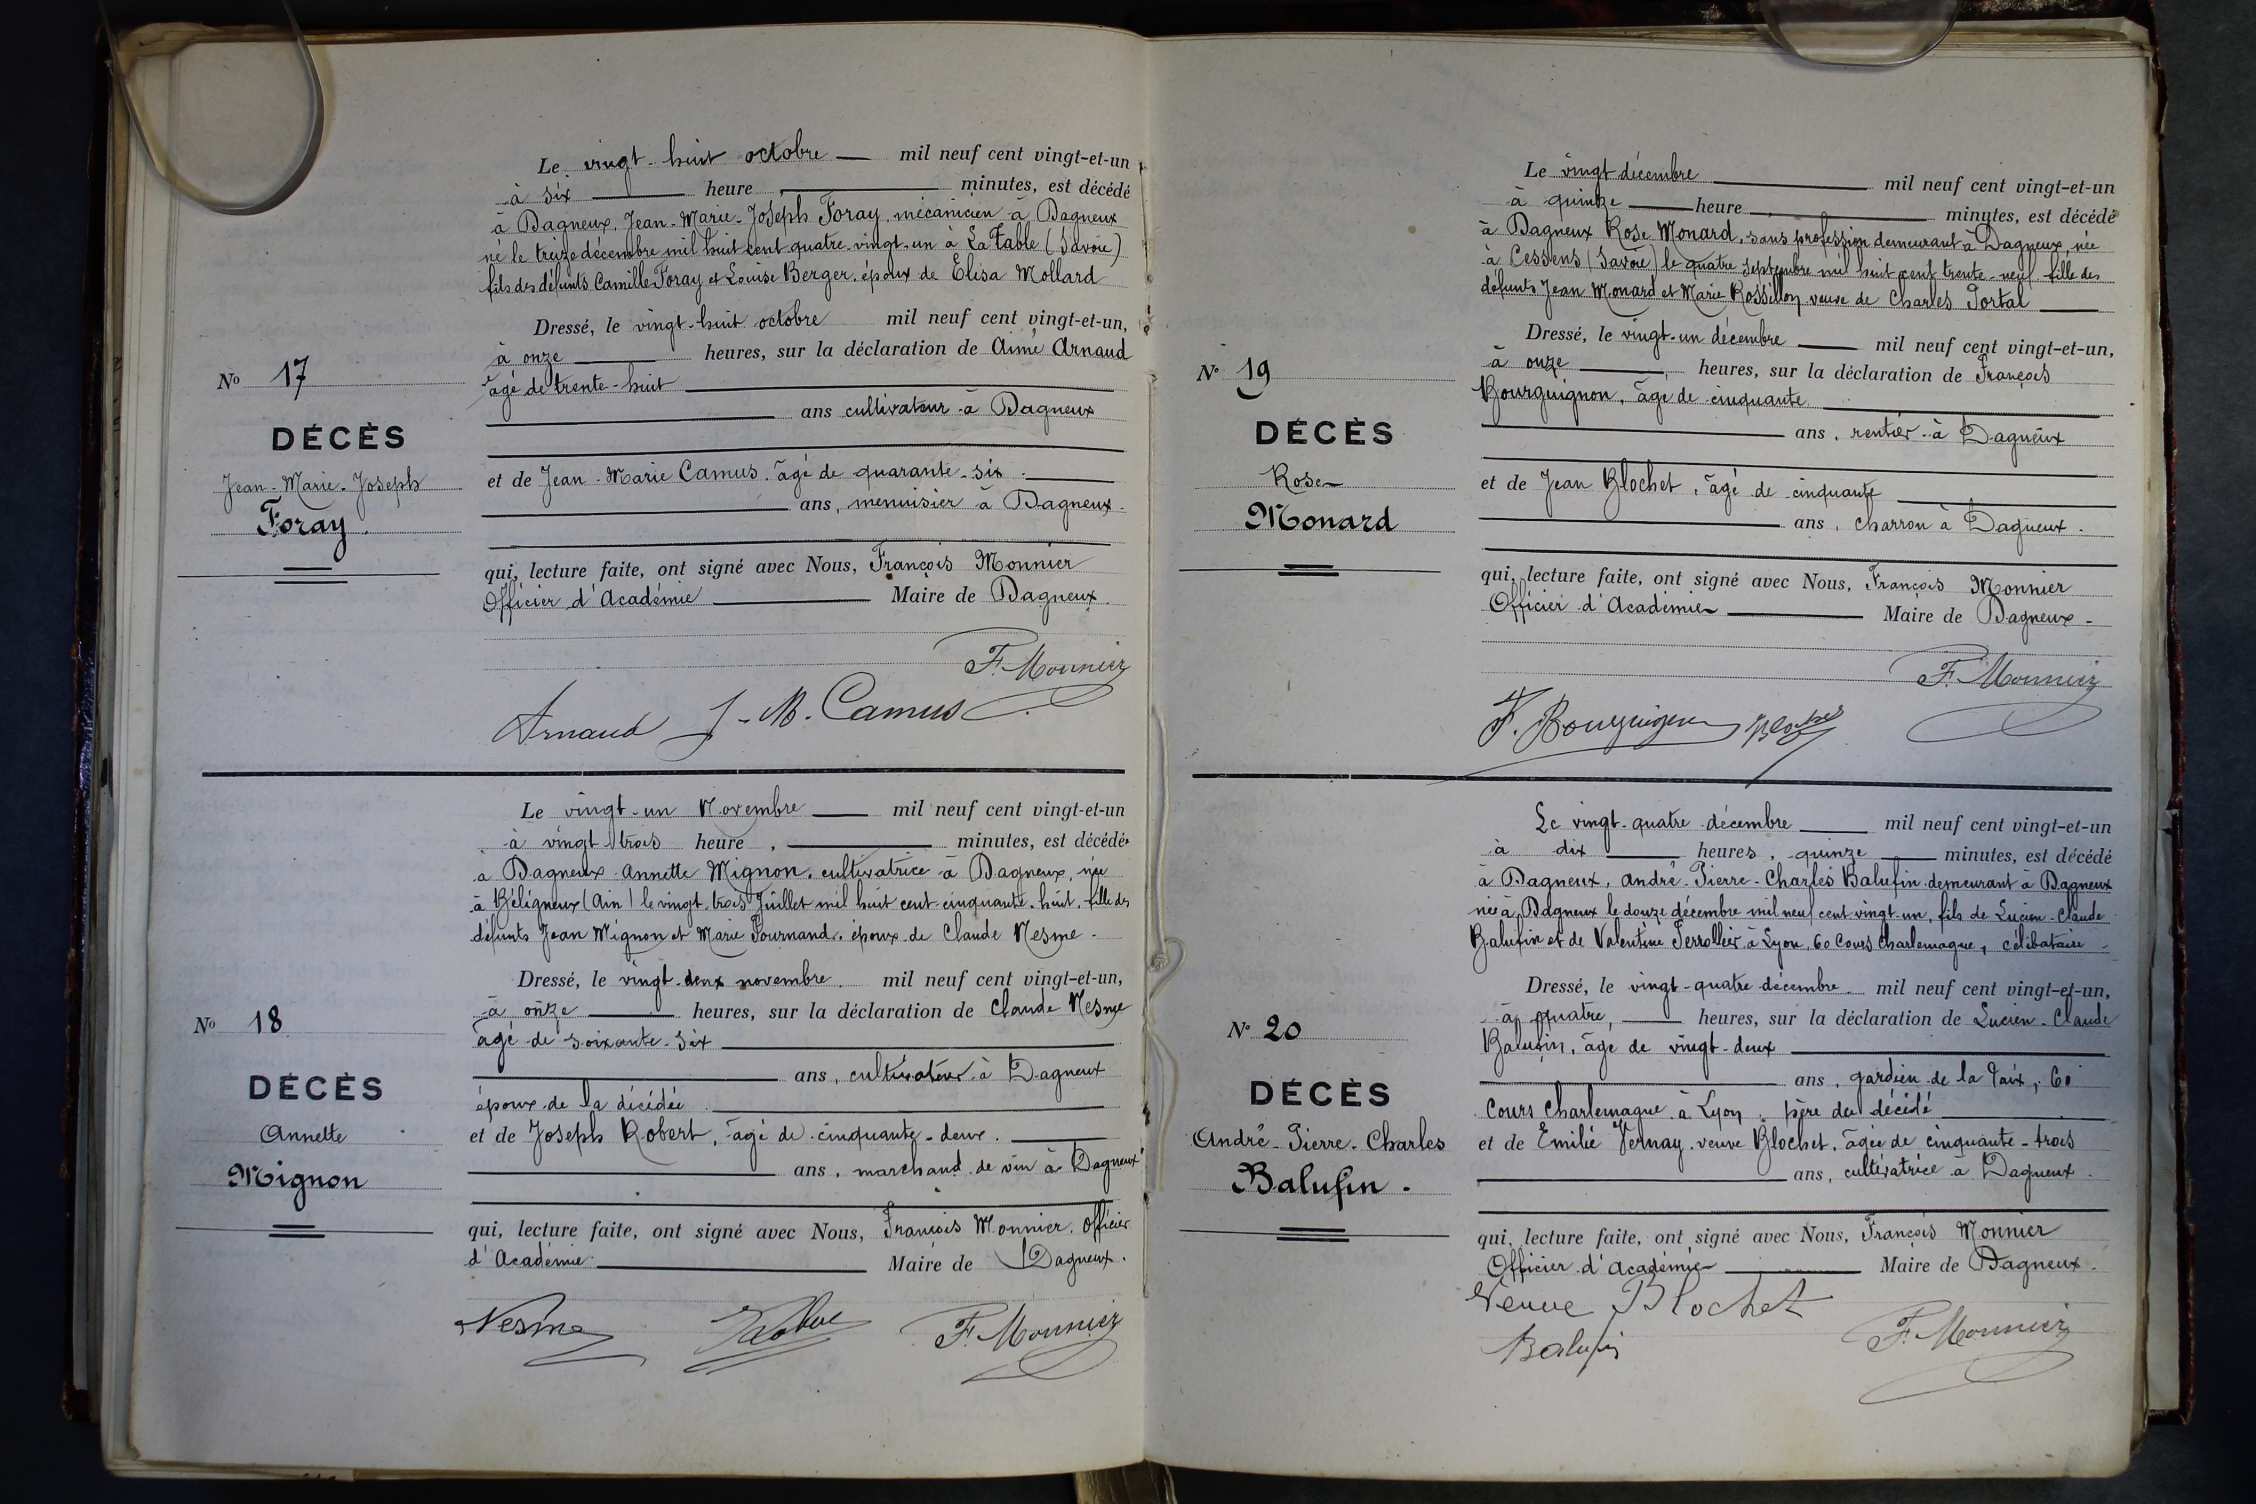 Le vingt-huit octobre mil neuf cent vingt-et-un
à six heure , minutes, est décédé
à Dagneux, Jean-Marie-Joseph Foray, mécanicien à Dagneux
né le treize décembre mil huit cent quatre-vingt-un à La Table (Savoie)
fils des défunts Camille Foray et Louise Berger, époux de Elisa Mollard
Dressé, le vingt-huit octobre mil neuf cent vingt-et-un,
à onze heures, sur la déclaration de Aimé Arnaud
âgé de trente-huit
ans cultivateur à Dagneux
et de Jean-Marie Camus, âgé de quarante-six
ans, menuisier à Dagneux.
qui, lecture faite, ont signé avec Nous, François Monnier
Officier d'Académie Maire de Dagneux.
F. Monnier
Arnaud J-M. Camus
No 17
DÉCÈS
Jean-Marie-Joseph
Foray.
Le vingt-un Novembre mil neuf cent vingt-et-un
à vingt trois heure , minutes, est décédée
à Dagneux Annette Mignon, cultivatrice à Dagneux, née
à Béligneux (Ain) le vingt-trois Juillet mil huit cent cinquante-huit, fille des
défunts Jean Mignon et Marie Pournand, époux de Claude Nesme-
Dressé, le vingt-deux novembre mil neuf cent vingt-et-un,
à onze heures, sur la déclaration de Claude Nesme
âgé de soixante-six
ans, cultivateur à Dagneux
époux de la décédée
et de Joseph Robert, âgé de cinquante-deux.
ans, marchand de vin à Dagneux
qui, lecture faite, ont signé avec Nous, François Monnier, Officier
d'Académie Maire de Dagneux.
Nesme F. Monnier
No 18
DÉCÈS
Annette
Mignon
Le vingt décembre mil neuf cent vingt-et-un
à quinze heure , minutes, est décédé
à Dagneux Rose Monard, sans profession demeurant à Dagneux, née
à Cessens (Savoie) le quatre Septembre mil huit cent trente-neuf fille des
défunts Jean Monard et Marie Rossillon veuve de Charles Portal
Dressé, le vingt-un décembre mil neuf cent vingt-et-un,
à onze heures, sur la déclaration de François
Bourguignon, âgé de cinquante
ans, rentier à Dagneux
et de Jean Blochet, âgé de cinquante
ans, charron à Dagneux.
qui, lecture faite, ont signé avec Nous, François Monnier
Officier d'Académie Maire de Dagneux-
F. Monnier
F. Bourguignon Blochet
No 19
DÉCÈS
Rose
Monard
Le vingt-quatre décembre mil neuf cent vingt-et-un
à dix heures, quinze minutes, est décédé
à Dagneux, André-Pierre-Charles Balufin demeurant à Dagneux
né à Dagneux le douze décembre mil neuf cent vingt-un, fils de Lucien-Claude
Balufin et de Valentine Perrollier à Lyon, 60 Cours Charlemagne, célibataire-
Dressé, le vingt-quatre décembre mil neuf cent vingt-et-un,
à quatre, heures, sur la déclaration de Lucien-Claude
Balufin, âgé de vingt-deux
ans, gardien de la Paix, 60
Cours Charlemagne à Lyon, père du décédé
et de Emilie Vernay veuve Blochet, âgée de cinquante-trois
ans, cultivatrice à Dagneux.
qui, lecture faite, ont signé avec Nous, François Monnier
Officier d'Académie Maire de Dagneux.
Veuve Blochet
Balufin F. Monnier
No 20
DÉCÈS
André-Pierre-Charles
Balufin.